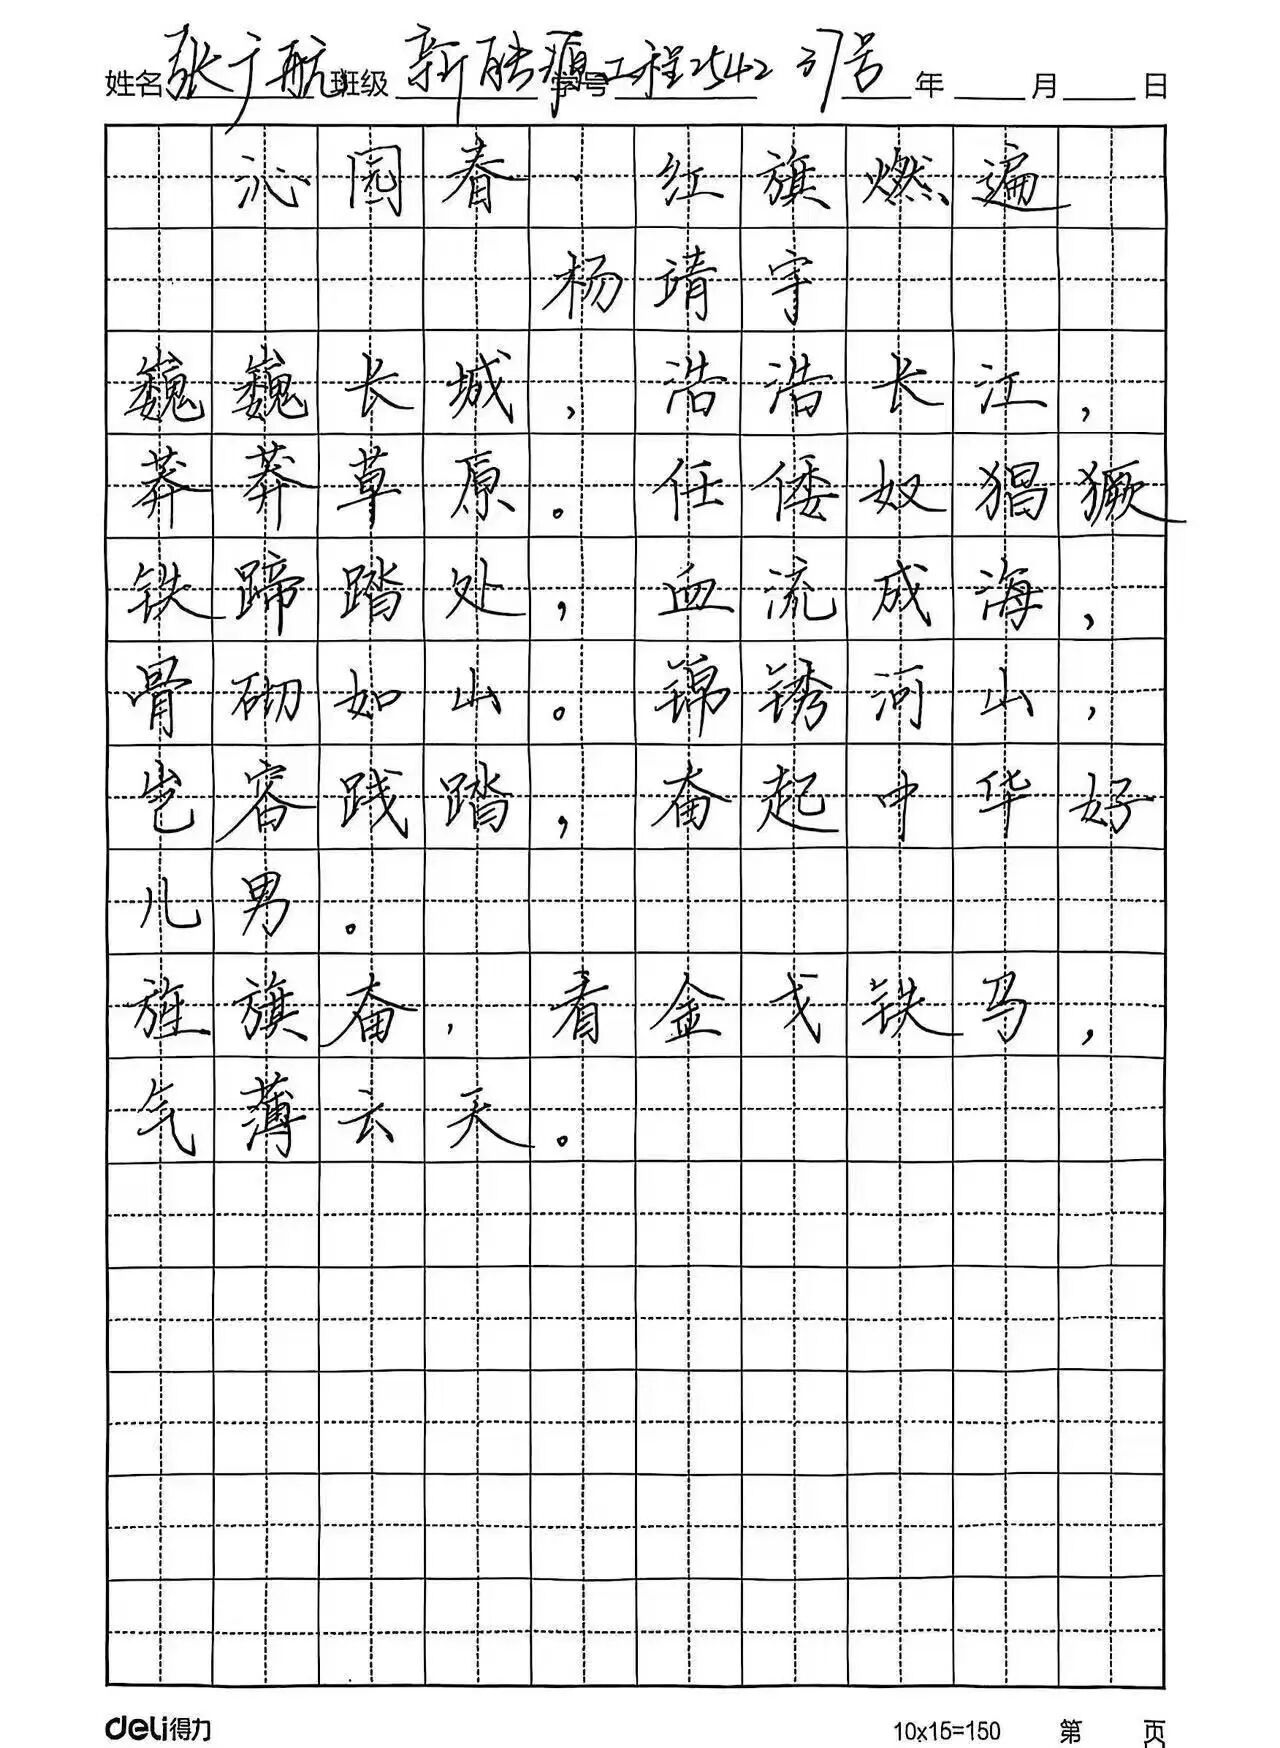 姓名 张广航 班级 新能源 学号 工程2542 37号 年 月 日
沁园春·红旗燃遍
杨靖宇
巍巍长城，浩浩长江，
莽莽草原。任倭奴猖獗
铁蹄踏处，血流成海，
骨砌如山。锦锈河山，
岂容践踏，奋起中华好
儿男。
旌旗奋，看金戈铁马，
气薄云天。
deli得力 10x15=150 第 页